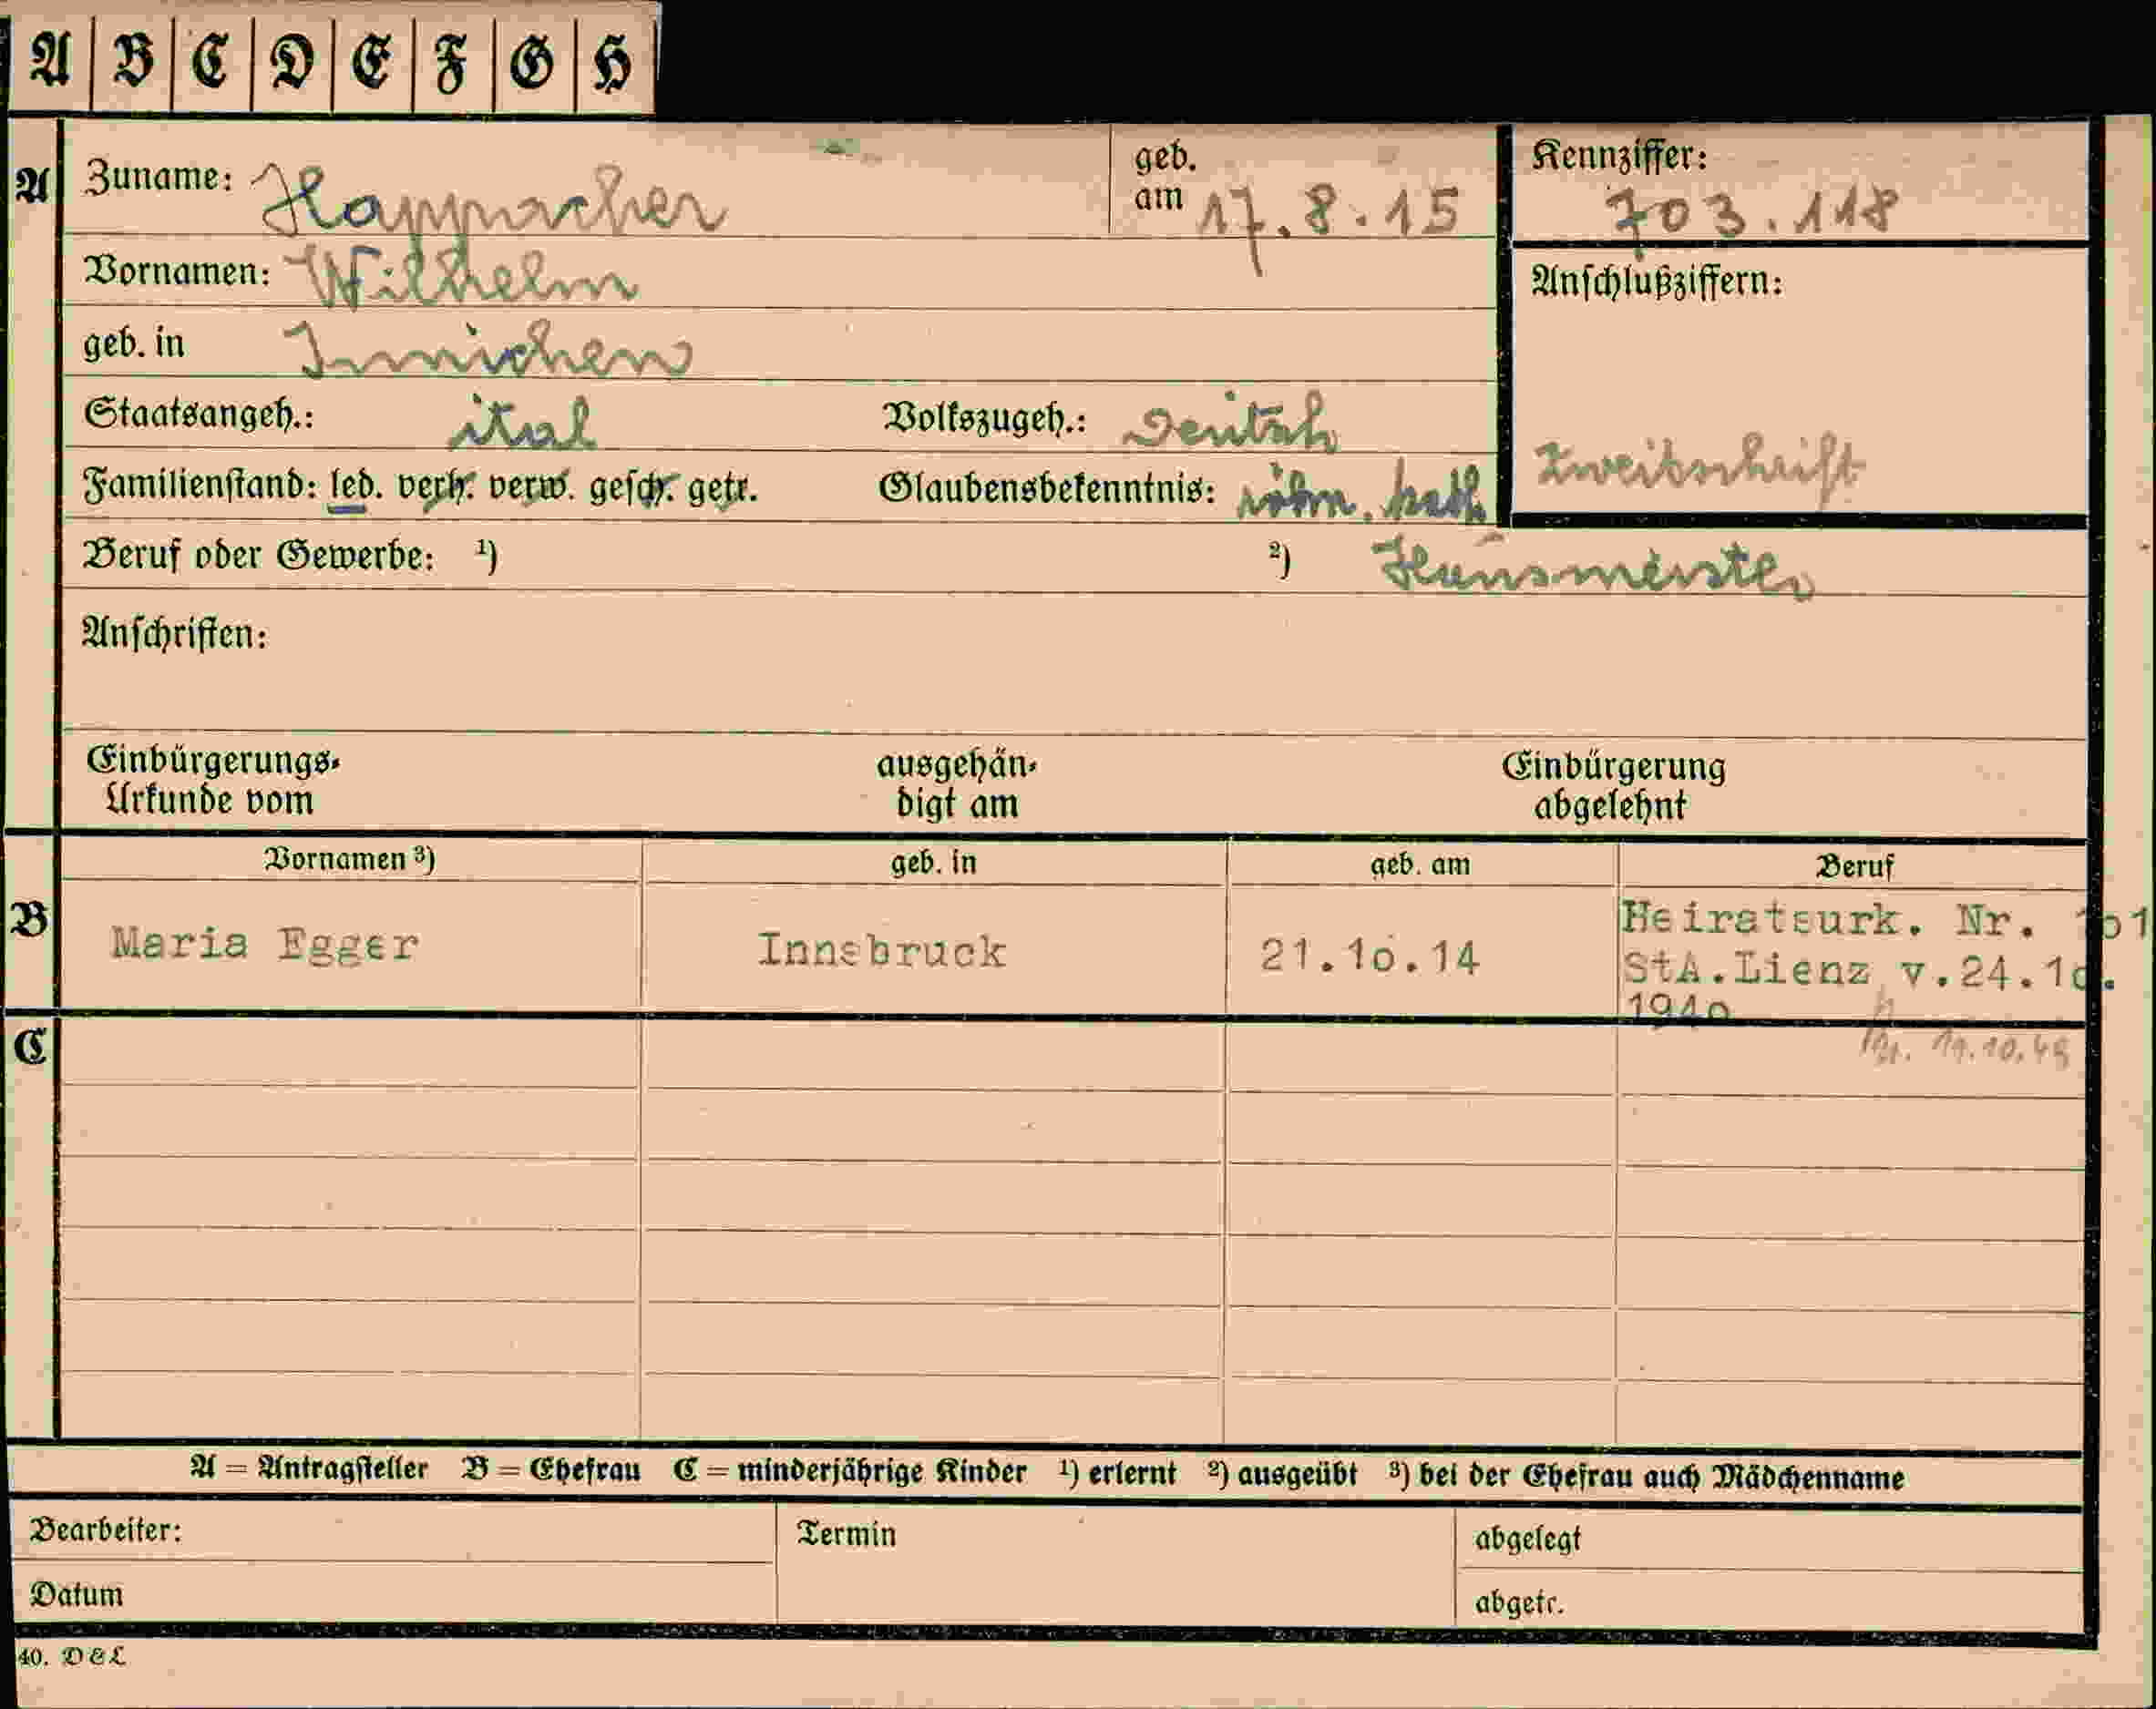 A B C D E F G H
A
Zuname: Happacher
geb. am 17.8.15
Kennziffer: 703.118
Vornamen: Wilhelm
Anschlußziffern:
geb. in Innichen
Staatsangeh.: ital Volkszugeh.: Deutsch
Zweitschrift
Familienstand: led. verh. verw. gesch. getr. Glaubensbekenntnis: röm. kath
Beruf oder Gewerbe: ¹) ²) Hausmeister
Anschriften:
Einbürgerungs- ausgehän- Einbürgerung
Urkunde vom digt am abgelehnt
Vornamen ³) geb. in geb. am Beruf
B
Maria Egger Innsbruck 21.10.14 Heiratsurk. Nr.
StA.Lienz v.24.10.
1940
C
19.10.48
A = Antragsteller B = Ehefrau C = minderjährige Kinder ¹) erlernt ²) ausgeübt ³) bei der Ehefrau auch Mädchenname
Bearbeiter: Termin abgelegt
Datum abgetr.
40. D & L